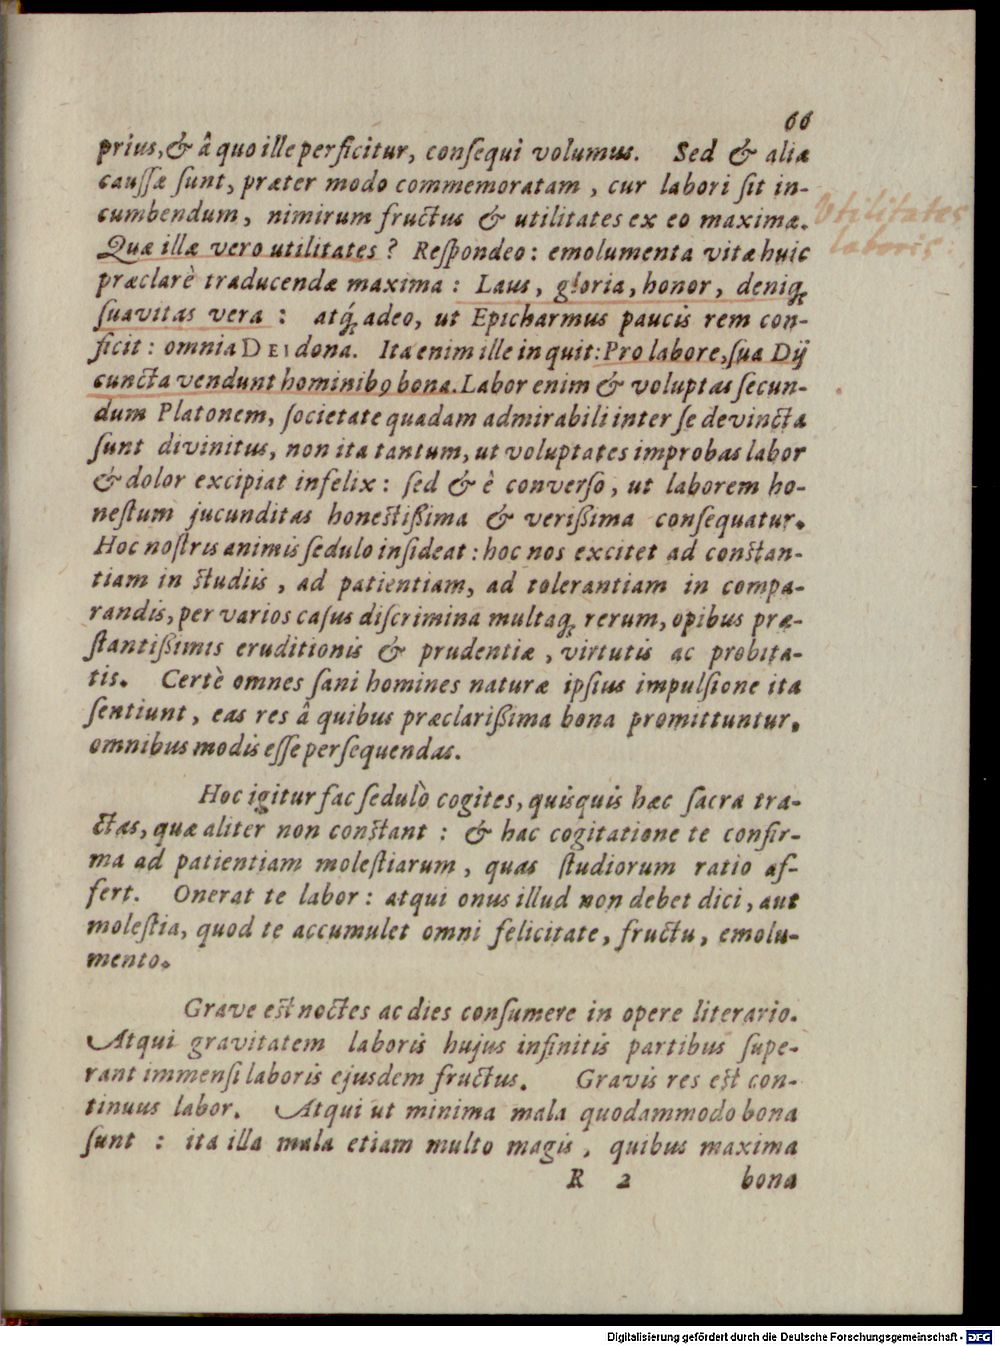 66
prius, & â quo ille perficitur, conſequi volumus. Sed & aliæ
cauſſæ ſunt, præter modo commemoratam, cur labori ſit in-
cumbendum, nimirum fructus & utilitates ex eo maximæ.
Utilitates
laboris:
Quæ illæ vero utilitates? Reſpondeo: emolumenta vitæ huic
præclarè traducendæ maxima: Laus, gloria, honor, deniq́;
ſuavitas vera: atq́; adeo, ut Epicharmus paucis rem con-
ficit: omnia DEI dona. Ita enim ille inquit: Pro labore, ſua Dij
cuncta vendunt hominibꝰ bona. Labor enim & voluptas ſecun-
dum Platonem, ſocietate quadam admirabili inter ſe devincta
ſunt divinitus, non ita tantum, ut voluptates improbas labor
& dolor excipiat infelix: ſed & è converſo, ut laborem ho-
neſtum jucunditas honeſtißima & verißima conſequatur.
Hoc noſtris animis ſedulo inſideat: hoc nos excitet ad conſtan-
tiam in ſtudiis, ad patientiam, ad tolerantiam in compa-
randis, per varios caſus diſcrimina multaq; rerum, opibus præ-
ſtantißimis eruditionis & prudentiæ, virtutis ac probita-
tis. Certè omnes ſani homines naturæ ipſius impulſione ita
ſentiunt, eas res â quibus præclarißima bona promittuntur,
omnibus modis eſſe perſequendas.
Hoc igitur fac ſedulò cogites, quisquis hæc ſacra tra-
ctas, quæ aliter non conſtant: & hac cogitatione te confir-
ma ad patientiam moleſtiarum, quas ſtudiorum ratio af-
fert. Onerat te labor: atqui onus illud non debet dici, aut
moleſtia, quod te accumulet omni felicitate, fructu, emolu-
mento.
Grave eſt noctes ac dies conſumere in opere literario.
Atqui gravitatem laboris hujus infinitis partibus ſupe-
rant immenſi laboris ejusdem fructus. Gravis res eſt con-
tinuus labor. Atqui ut minima mala quodammodo bona
ſunt: ita illa mala etiam multo magis, quibus maxima
R 2 bona
Digitalisierung gefördert durch die Deutsche Forschungsgemeinschaft - DFG